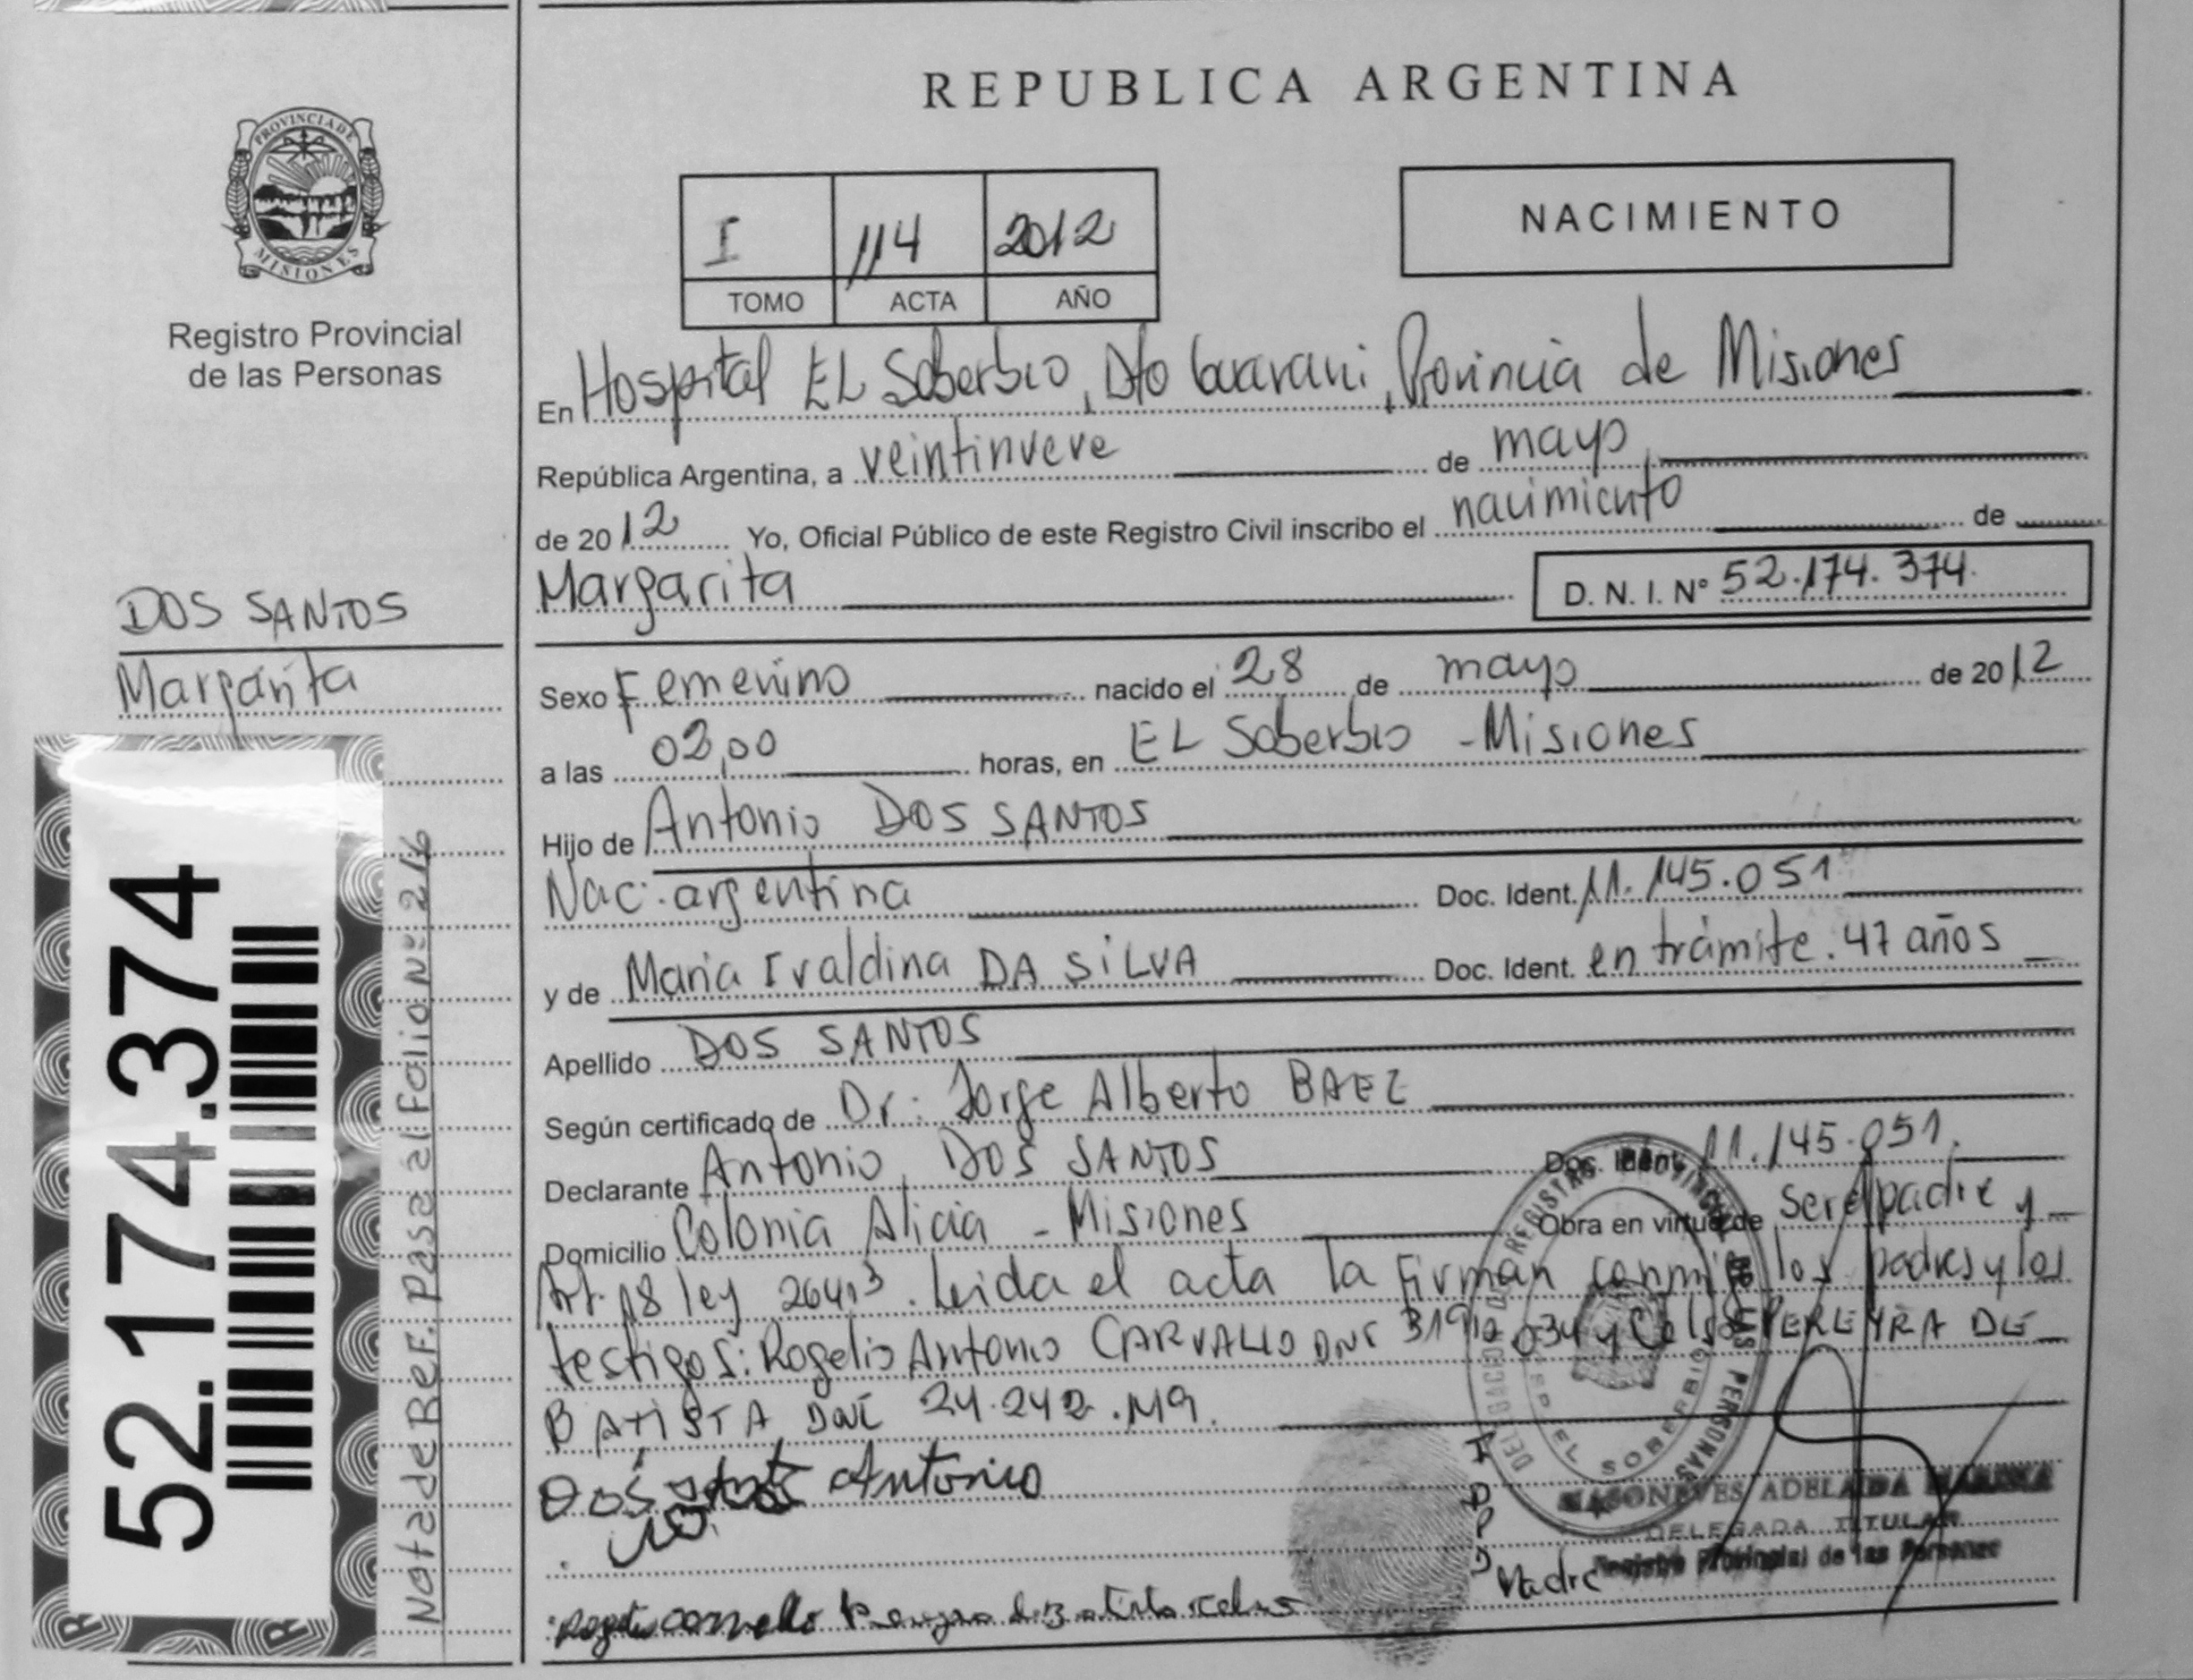 REPUBLICA ARGENTINA
PROVINCIA DE MISIONES
Registro Provincial
de las Personas
I 114 2012
TOMO ACTA AÑO
NACIMIENTO
En Hospital EL Soberbio, Dto Guarani, Provincia de Misiones
República Argentina, a veintinueve de mayo
de 2012 Yo, Oficial Público de este Registro Civil inscribo el nacimiento de
Margarita D. N. I. Nº 52.174.374.
DOS SANTOS
Margarita
Sexo Femenino nacido el 28 de mayo de 2012
a las 02,00 horas, en EL Soberbio - Misiones
Hijo de Antonio DOS SANTOS
Nac: argentina Doc. Ident. 11.145.051
y de Maria Ivaldina DA SILVA Doc. Ident. en trámite. 47 años
Apellido DOS SANTOS
Según certificado de Dr: Jorge Alberto BAEZ
Declarante Antonio DOS SANTOS Doc. Ident. 11.145.051.
Domicilio Colonia Alicia - Misiones Obra en virtud de ser el padre y
Art. 18 ley 26413. Leida el acta la firman conmigo los padres y los
testigos: Rogelio Antonio CARVALLO DNI 034 y Celso PEREYRA DE
BATISTA DNI 24.242.119.
Dos Antonio
DELEGACION REGISTRO PROVINCIAL DE LAS PERSONAS
EL SOBERBIO
I
D
P
D
Madre
ADELAIDA
DELEGADA TITULAR
Registro Provincial de las Personas
52.174.374
Nota de Ref. Pasa al Folio Nº 216